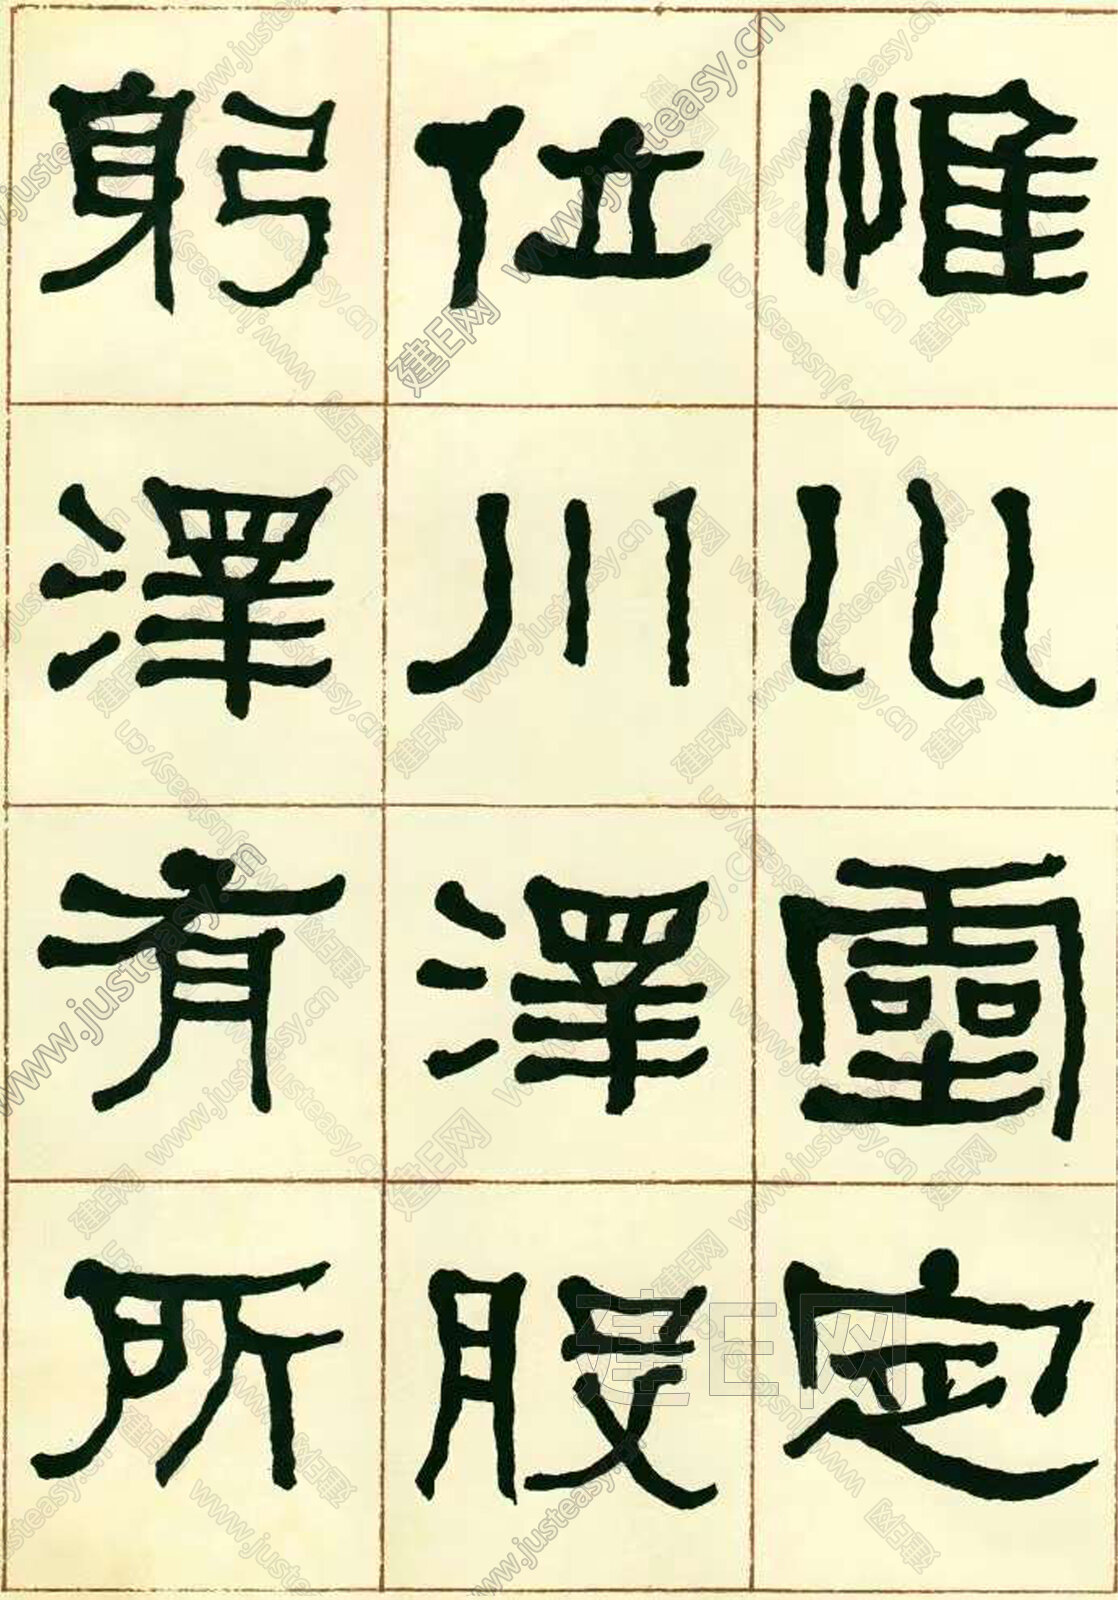 惟巛靈定
位川澤股
躬澤有所
建E网
www.justeasy.cn